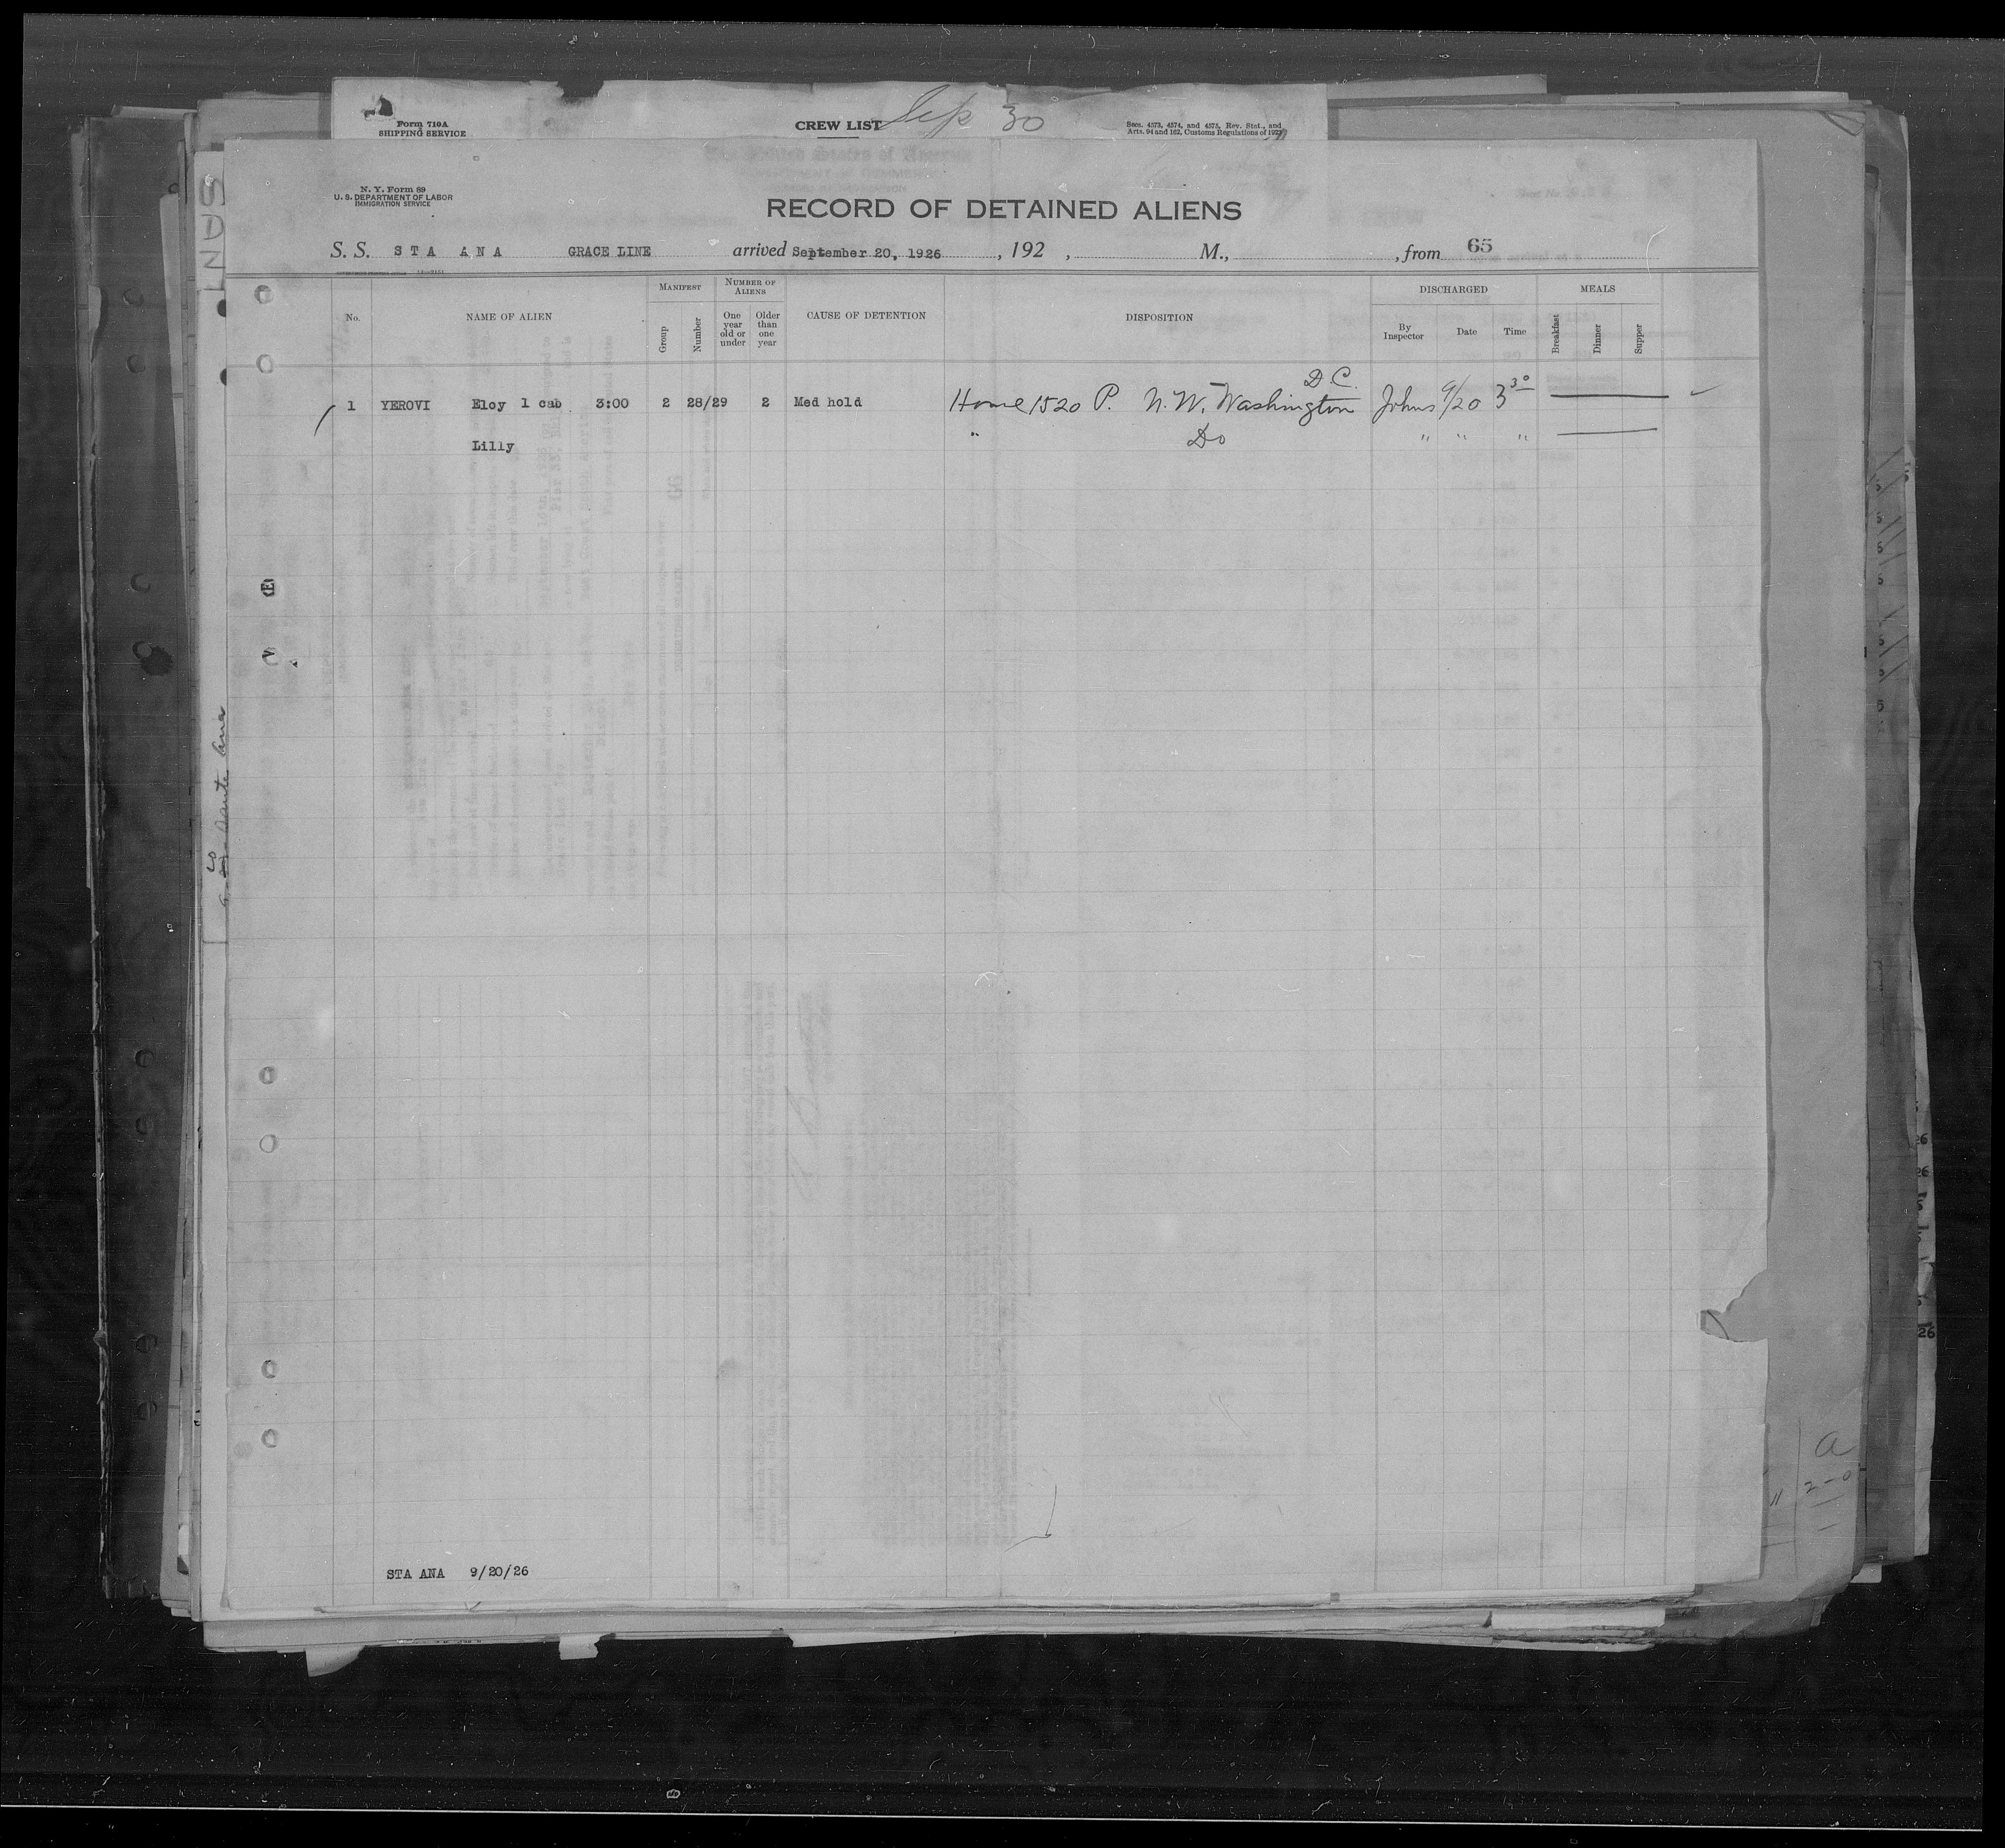 Form 710A
SHIPPING SERVICE
CREW LIST
Sep 30
Secs. 4573, 4574, and 4575, Rev. Stat., and
Arts. 94 and 162, Customs Regulations of 1923
N. Y. Form 89
U. S. DEPARTMENT OF LABOR
IMMIGRATION SERVICE
RECORD OF DETAINED ALIENS
S. S. STA ANA GRACE LINE arrived September 20, 1926, 192 , M., , from 65
No.
NAME OF ALIEN
MANIFEST
Group
Number
NUMBER OF ALIENS
One year old or under
Older than one year
CAUSE OF DETENTION
DISPOSITION
DISCHARGED
By Inspector
Date
Time
MEALS
Breakfast
Dinner
Supper
1 YEROVI Eloy 1 cab 3:00 2 28/29 2 Med hold Home 1520 P. N.W. Washington D.C. Johns 9/20 3 30
Lilly " Do " " "
STA ANA 9/20/26